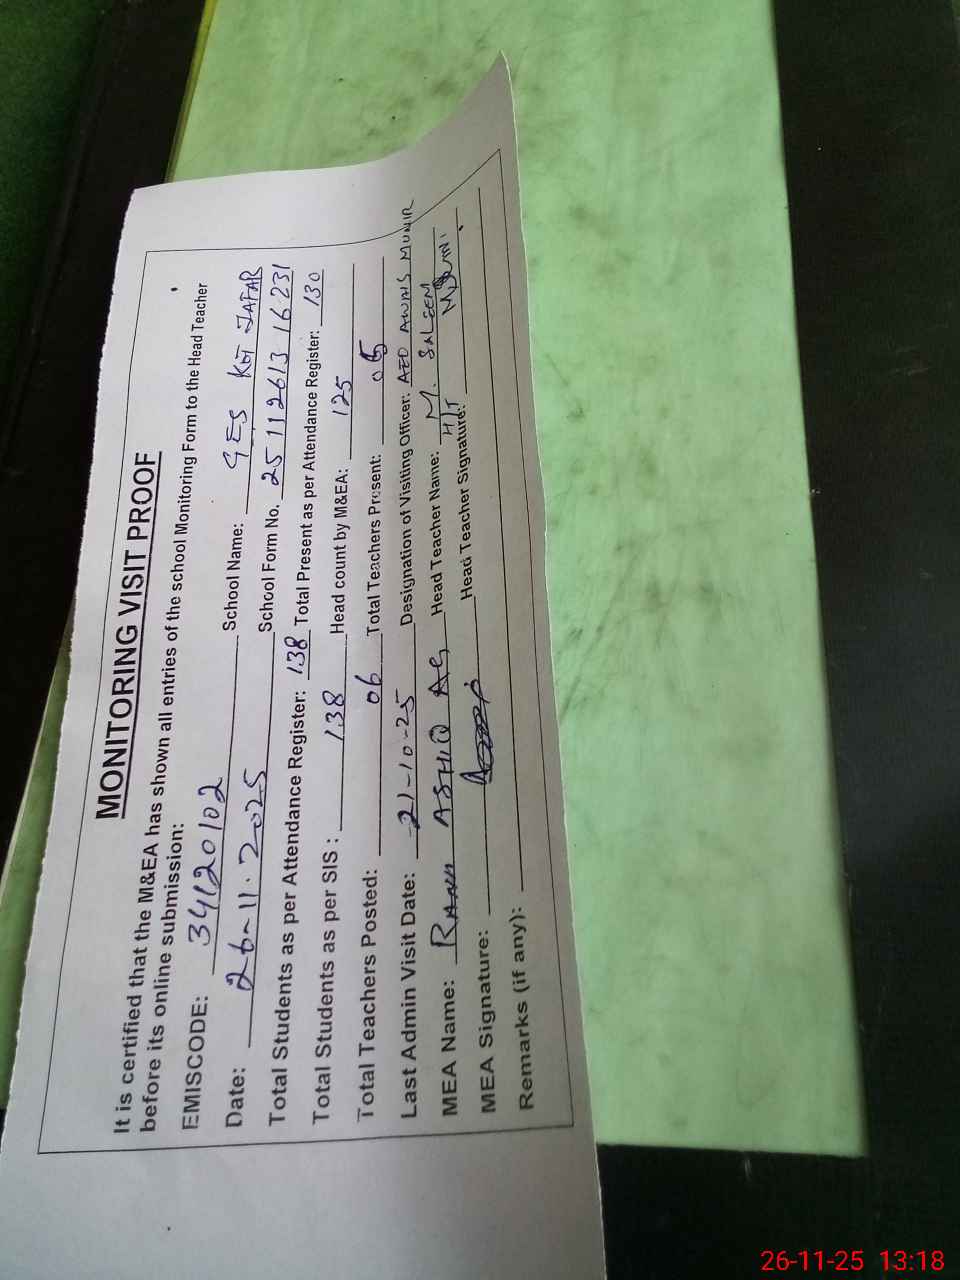 MONITORING VISIT PROOF
It is certified that the M&EA has shown all entries of the school Monitoring Form to the Head Teacher
before its online submission:
EMISCODE: 34120102 School Name: GES KOT JAFAR
Date: 26-11-2025 School Form No. 25112613 16231
Total Students as per Attendance Register: 138 Total Present as per Attendance Register: 130
Total Students as per SIS: 138 Head count by M&EA: 125
Total Teachers Posted: 06 Total Teachers Present: 05
Last Admin Visit Date: 21-10-25 Designation of Visiting Officer: AEO AWAIS MUNIR
MEA Name: RANA ASHIQ Ali Head Teacher Name: M. SALEEM
MEA Signature: Head Teacher Signature: HT
Remarks (if any):
26-11-25 13:18